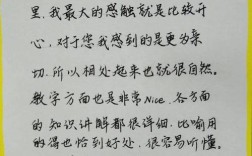 里，我最大的感触就是比较开
心，对于您我感到的是更为亲
切，所以相处起来也就很自然。
教学方面也是非常Nice，各方面
的知识讲解都很详细，比喻用
的得也恰到好处，很容易听懂。